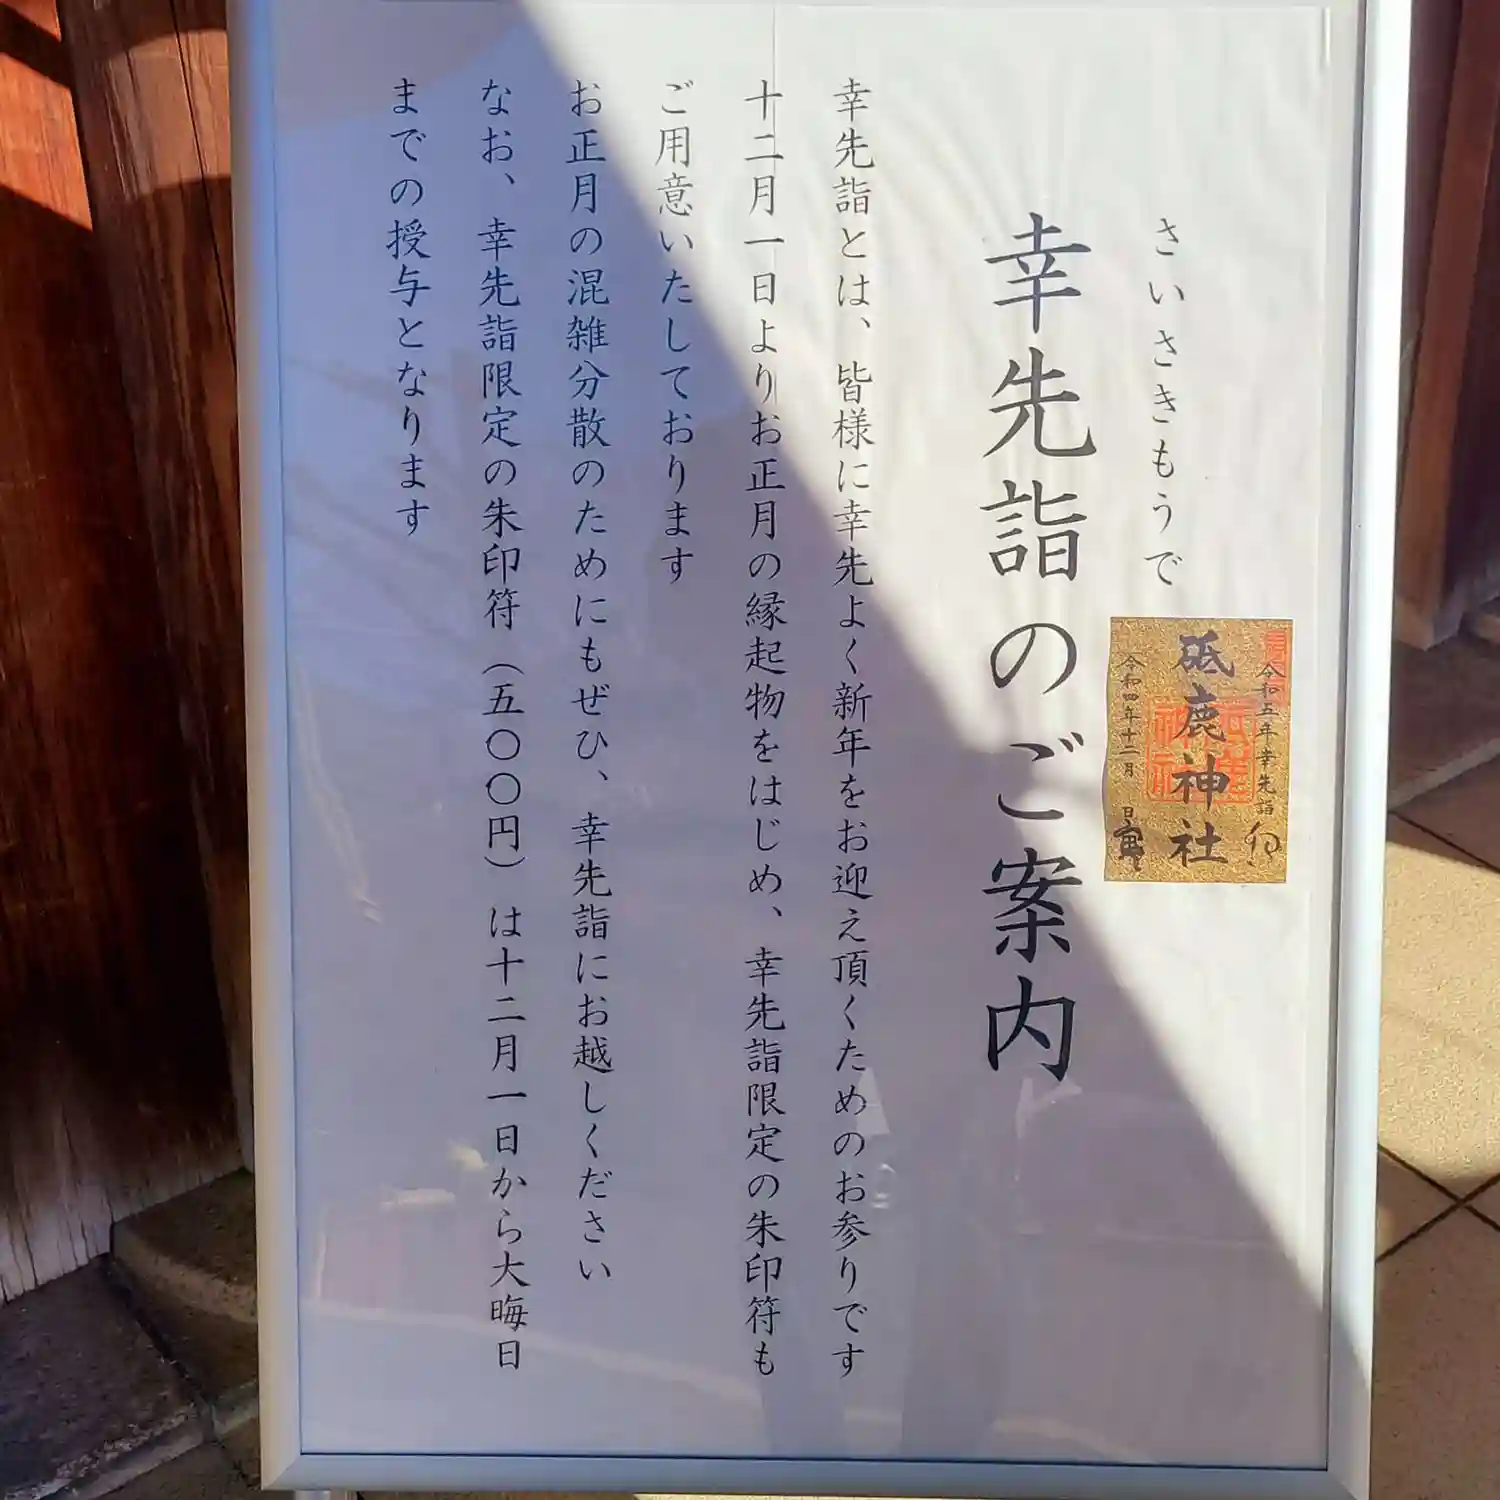 さいさきもうで
幸先詣のご案内
幸先詣とは、皆様に幸先よく新年をお迎え頂くためのお参りです
十二月一日よりお正月の縁起物をはじめ、幸先詣限定の朱印符も
ご用意いたしております
お正月の混雑分散のためにもぜひ、幸先詣にお越しください
なお、幸先詣限定の朱印符（五〇〇円）は十二月一日から大晦日
までの授与となります
令和五年幸先詣
砥鹿神社
令和四年十二月 日